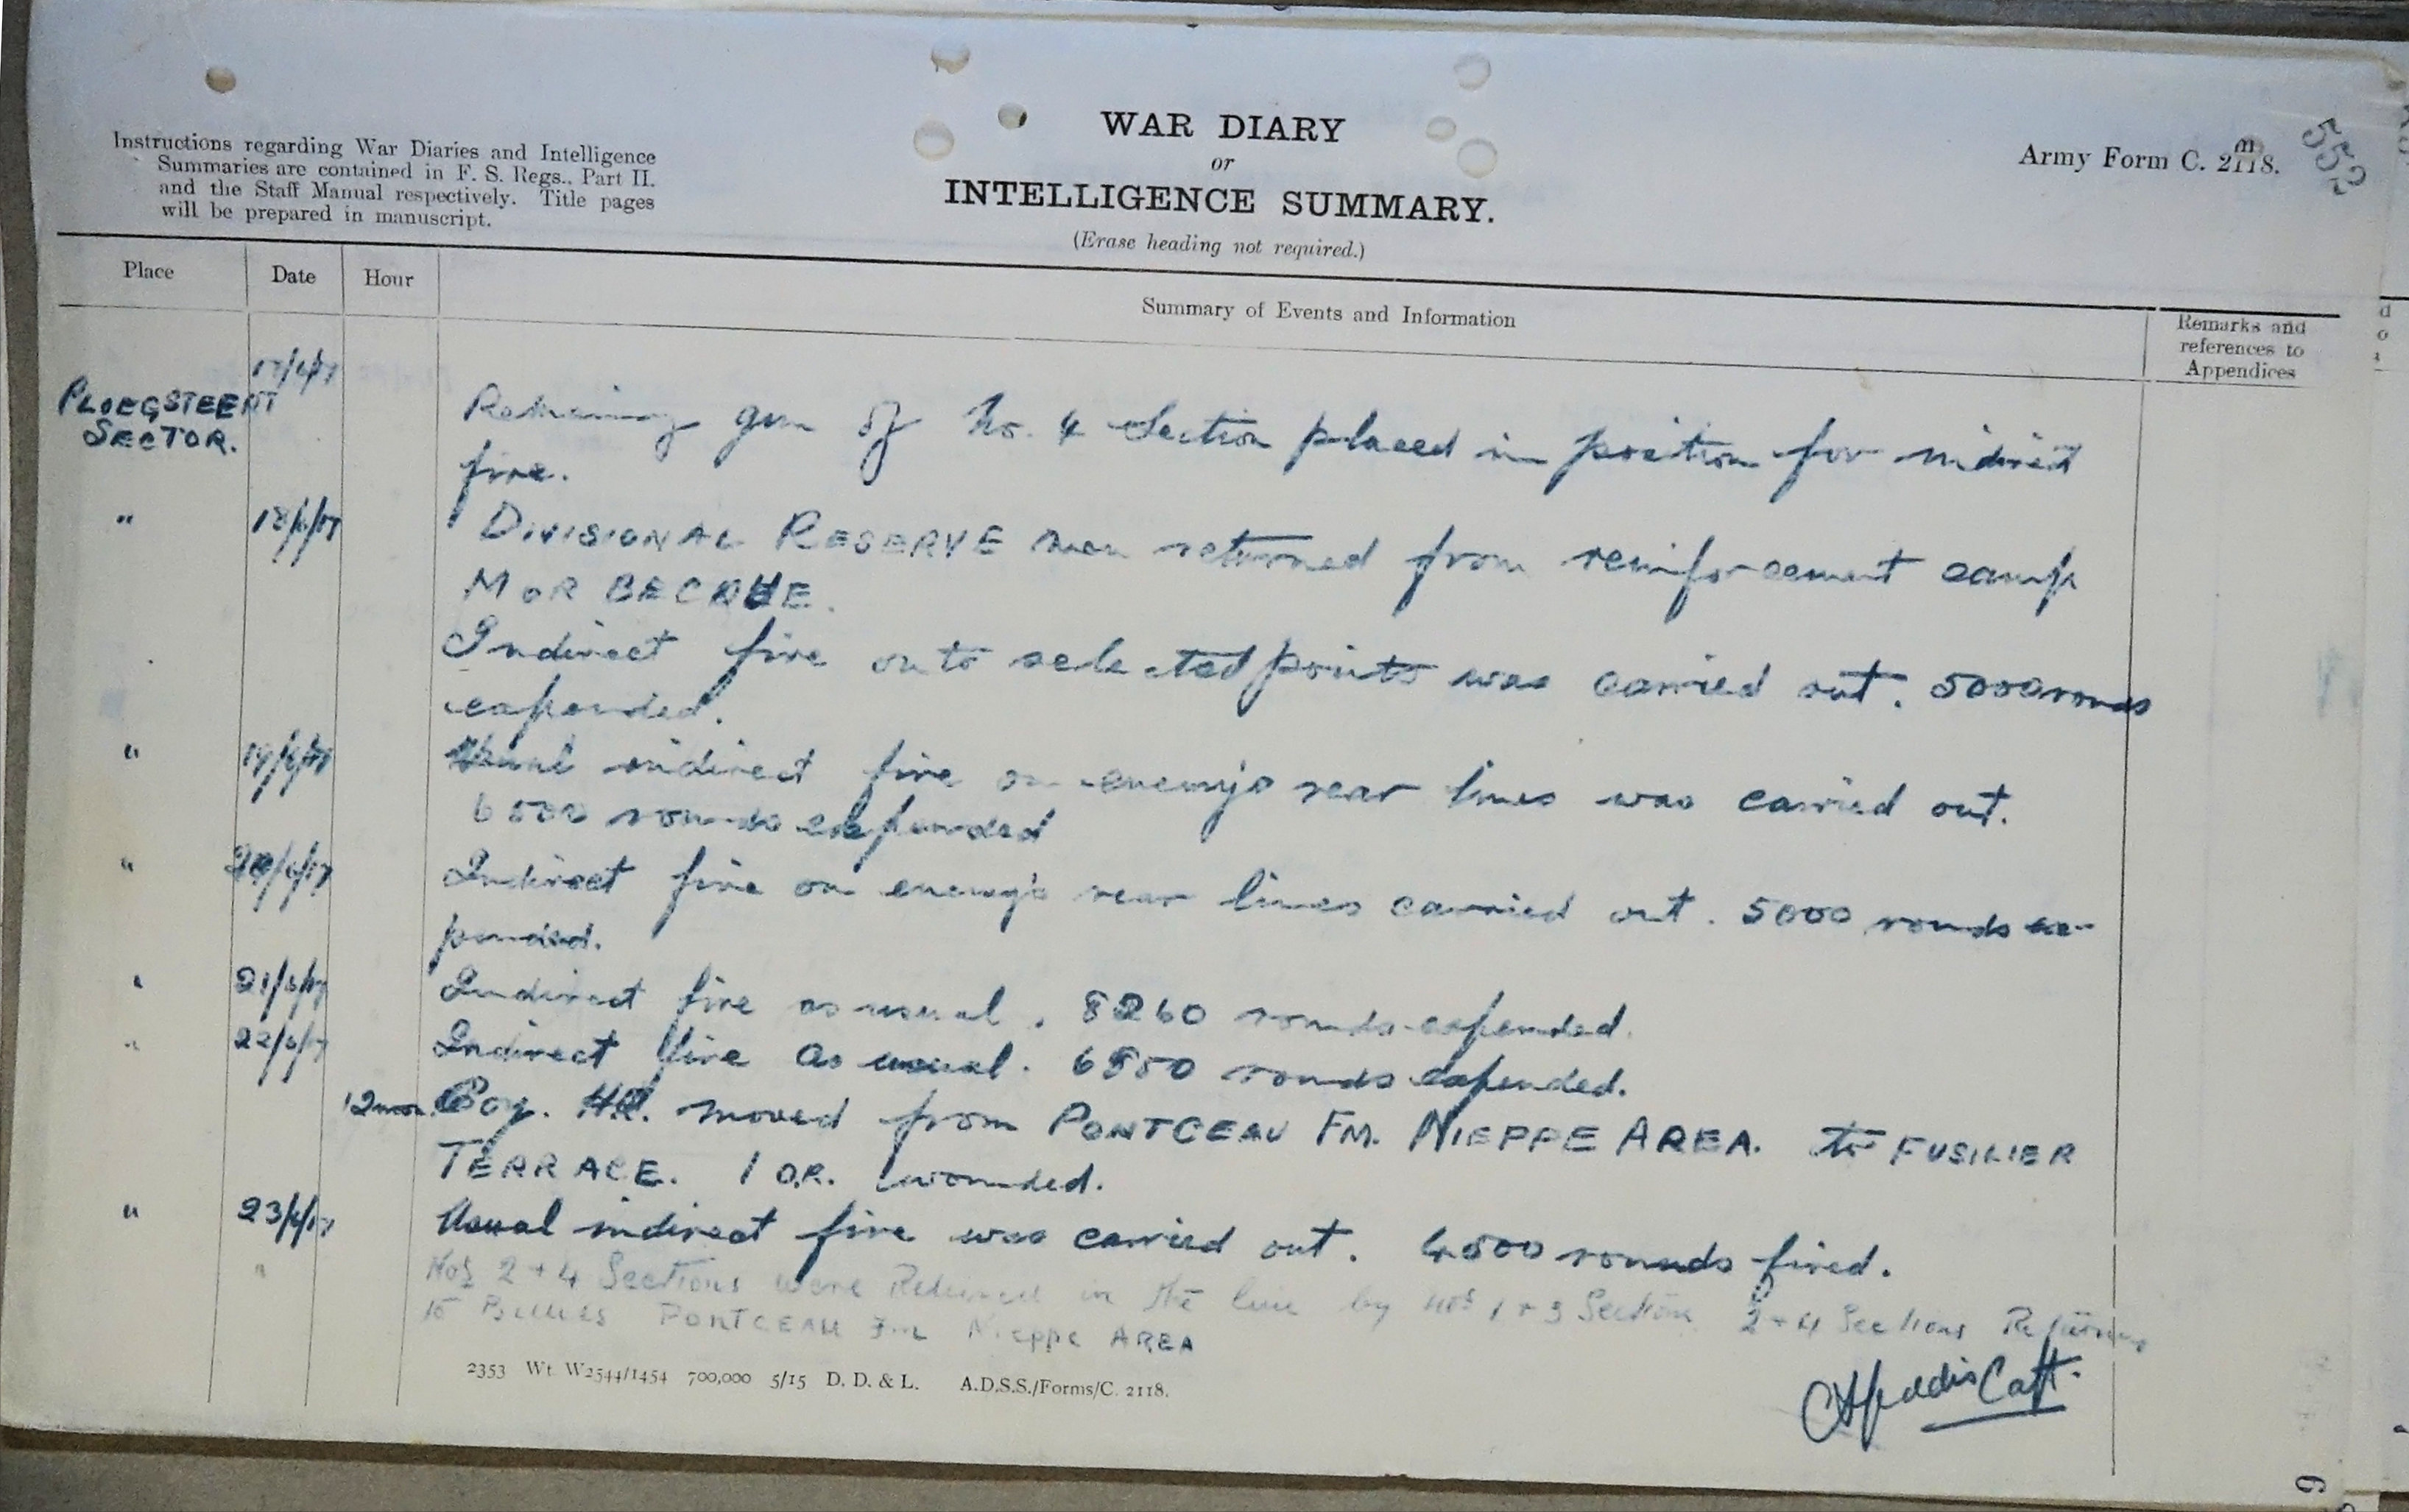 Instructions regarding War Diaries and Intelligence
Summaries are contained in F. S. Regs., Part II.
and the Staff Manual respectively. Title pages
will be prepared in manuscript.
WAR DIARY
or
INTELLIGENCE SUMMARY.
(Erase heading not required.)
Army Form C. 2118.
552
Place Date Hour Summary of Events and Information Remarks and
references to
Appendices
PLOEGSTEERT
SECTOR.
17/6/17 Remaining gun of No. 4 Section placed in position for indirect
fire.
" 18/6/17 DIVISIONAL RESERVE men returned from reinforcement camp
MORBECQUE.
Indirect fire onto selected points was carried out. 5000 rounds
expended.
" 19/6/17 Usual indirect fire on enemy's rear lines was carried out.
6500 rounds expended
" 20/6/17 Indirect fire on enemy's rear lines carried out. 5000 rounds ex-
pended.
" 21/6/17 Indirect fire as usual. 8260 rounds expended.
" 22/6/17 Indirect fire as usual. 6850 rounds expended.
12 noon. Coy. HQ. moved from PONTCEAU FM. NIEPPE AREA. to FUSILIER
TERRACE. 1 O.R. wounded.
" 23/6/17 Usual indirect fire was carried out. 4500 rounds fired.
" Nos 2 + 4 Sections were Relieved in the line by Nos 1 + 3 Section 2 + 4 Sections Returning
to Billets PONTCEAU Fm Nieppe AREA
Capt.
2353 Wt. W2544/1454 700,000 5/15 D. D. & L. A.D.S.S./Forms/C. 2118.